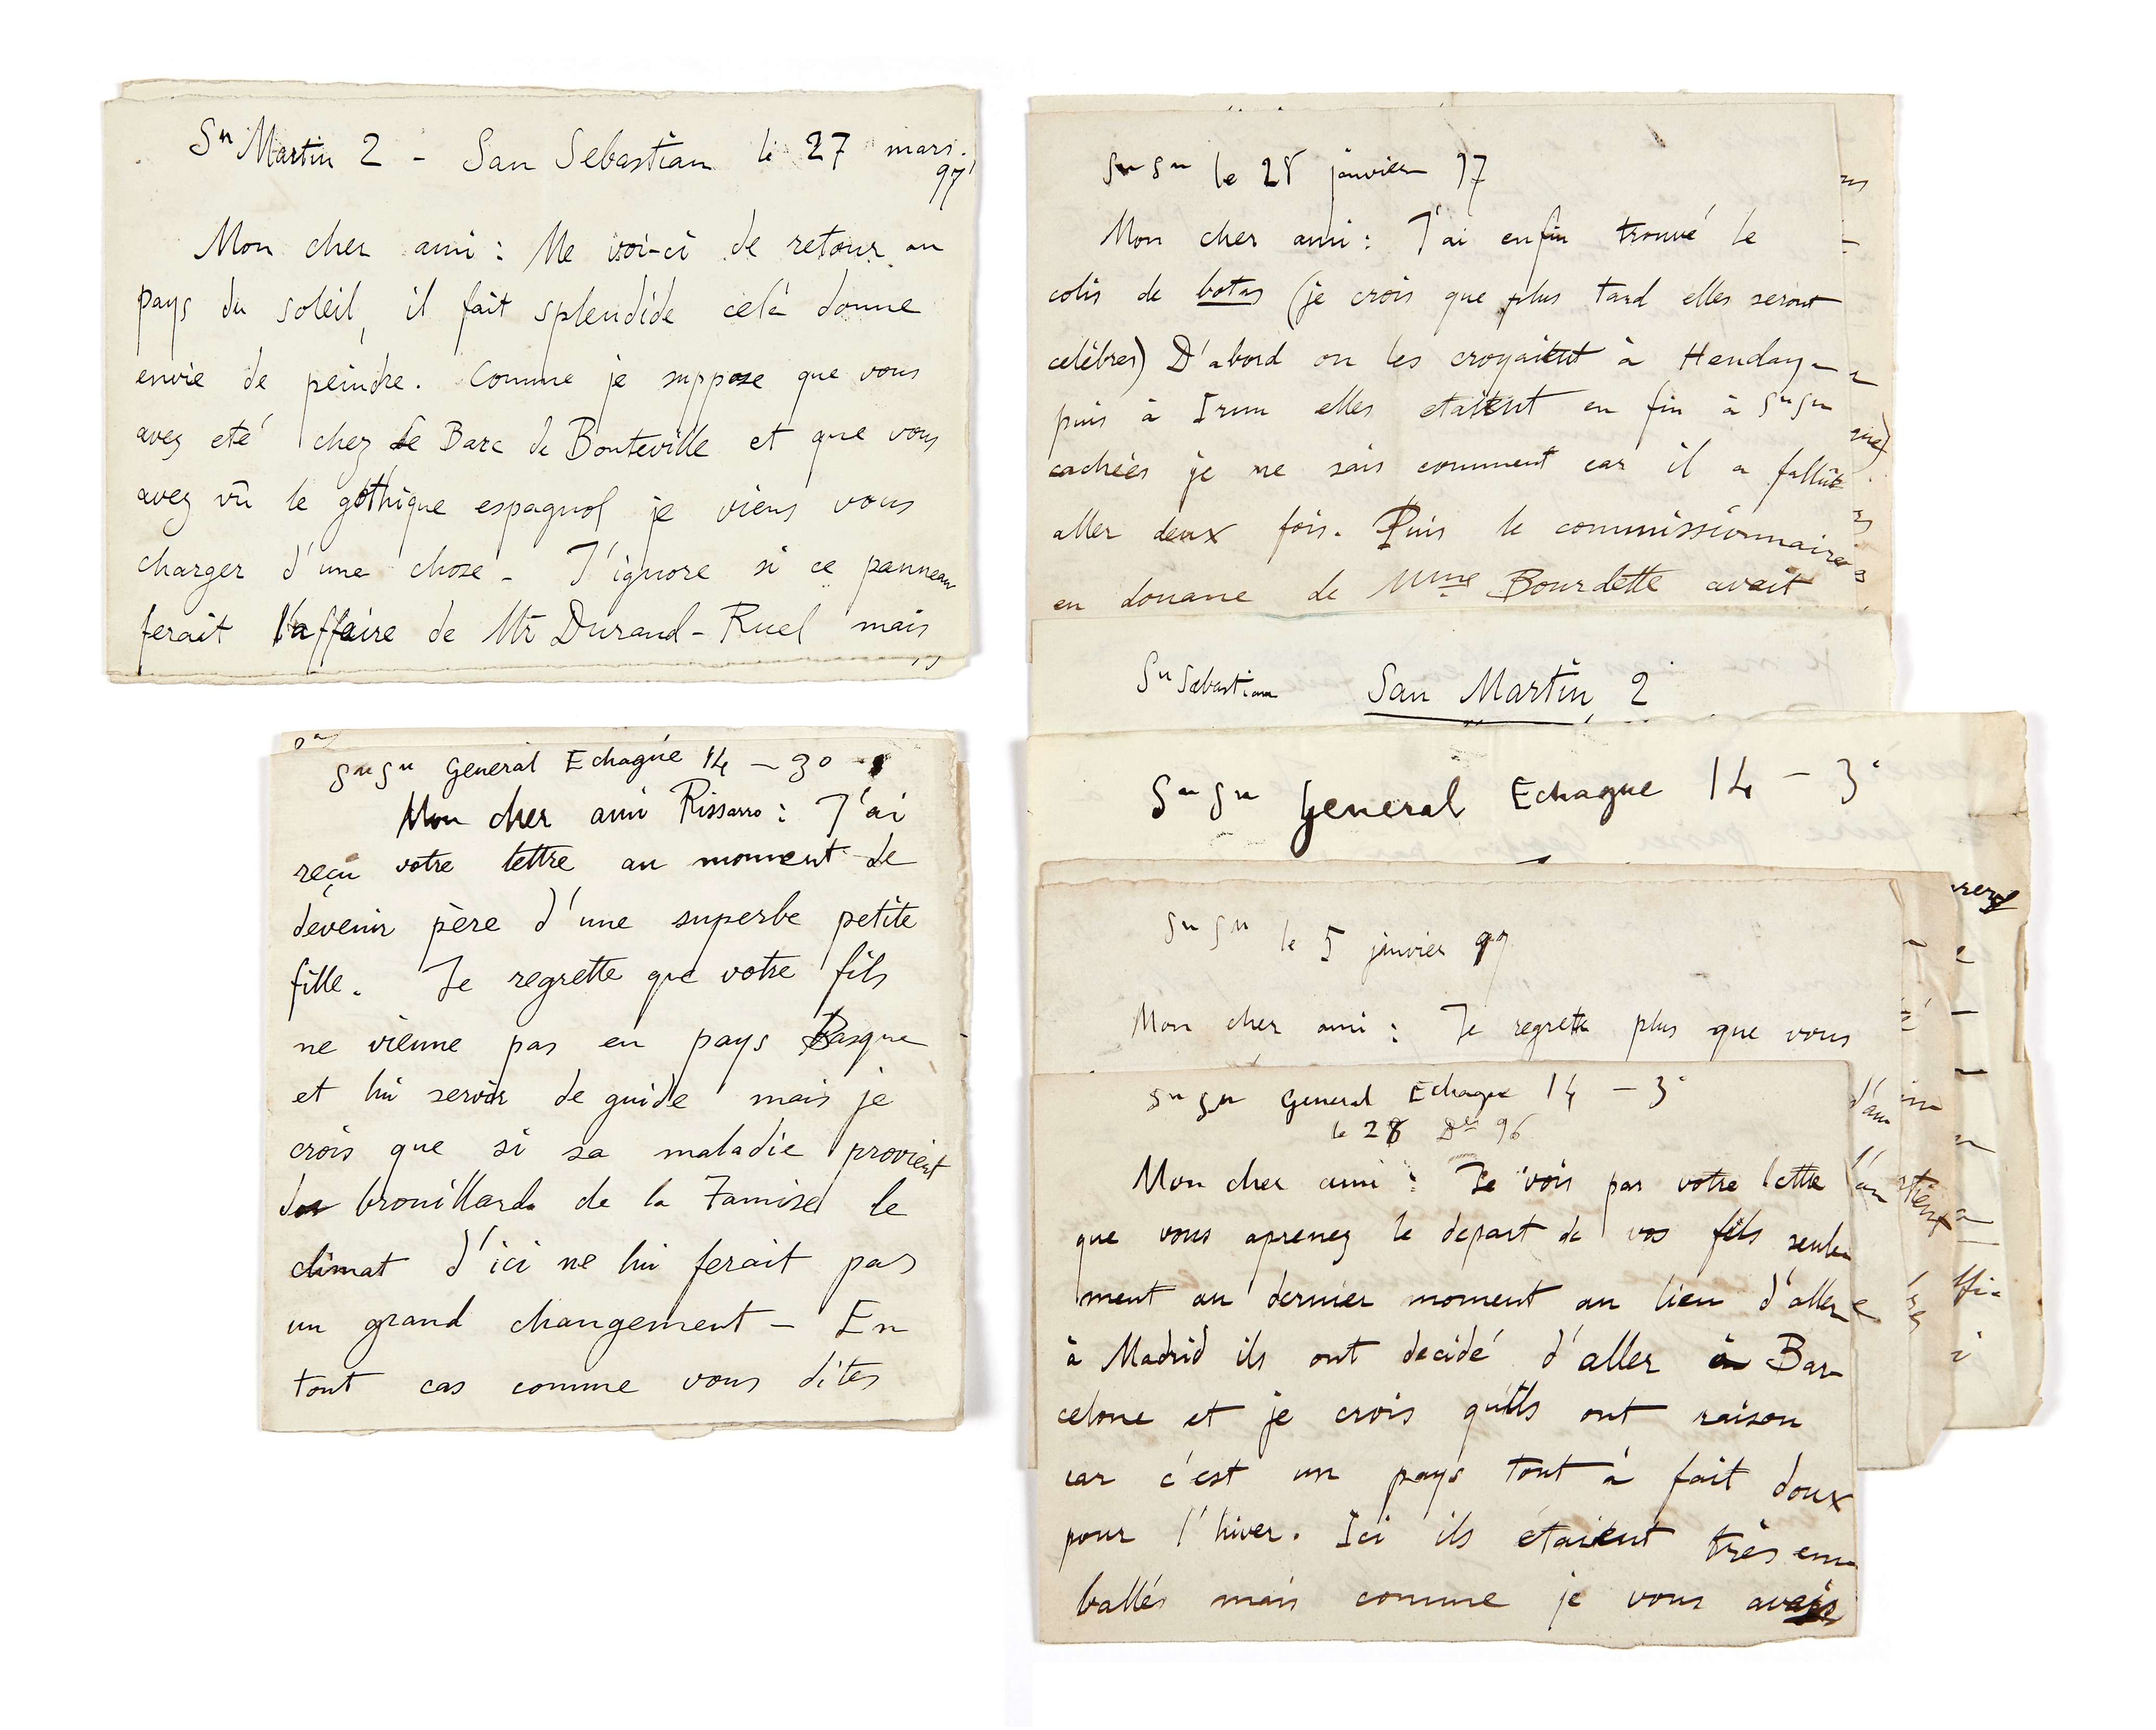 Sn Martin 2 - San Sebastian le 27 mars.
97
Mon cher ami : Me voi-ci de retour au
pays du soleil, il fait splendide celà donne
envie de peindre. Comme je suppose que vous
avez eté chez Le Barc de Bouteville et que vous
avez vû le gothique espagnol je viens vous
charger d'une chose - J'ignore si ce panneau
ferait l'affaire de Mr Durand-Ruel mais
Sn Sn General Echagüe 14 - 3º
Mon cher ami Pissarro : J'ai
reçu votre lettre au moment de
devenir père d'une superbe petite
fille. Je regrette que votre fils
ne vienne pas en pays Basque
et lui servir de guide mais je
crois que si sa maladie provient
brouillards de la Tamise le
climat d'ici ne lui ferait pas
un grand changement - En
tout cas comme vous dites
Sn Sn le 28 janvier 97
Mon cher ami : J'ai enfin trouvé le
colis de botas (je crois que plus tard elles seront
celèbres) D'abord on les croyaient à Henday-
puis à Irun elles etaient en fin à Sn Sn
cachées je ne sais comment car il a fallût
aller deux fois. Puis le commissionnaire
en douane de Mme Bourdette avait
Sn Sebastian San Martin 2
Sn Sn General Echague 14 - 3º
Sn Sn le 5 janvier 97
Mon cher ami : Je regrette plus que vous
Sn Sn General Echague 14 - 3º
le 28 De 96
Mon cher ami : Je vois par votre lettre
que vous aprenez le depart de vos fils seule
ment au dernier moment au lieu d'aller
à Madrid ils ont decidé d'aller à Bar-
celone et je crois qu'ils ont raison
car c'est un pays tout à fait doux
pour l'hiver. Ici ils étaient très em-
ballés mais comme je vous avais